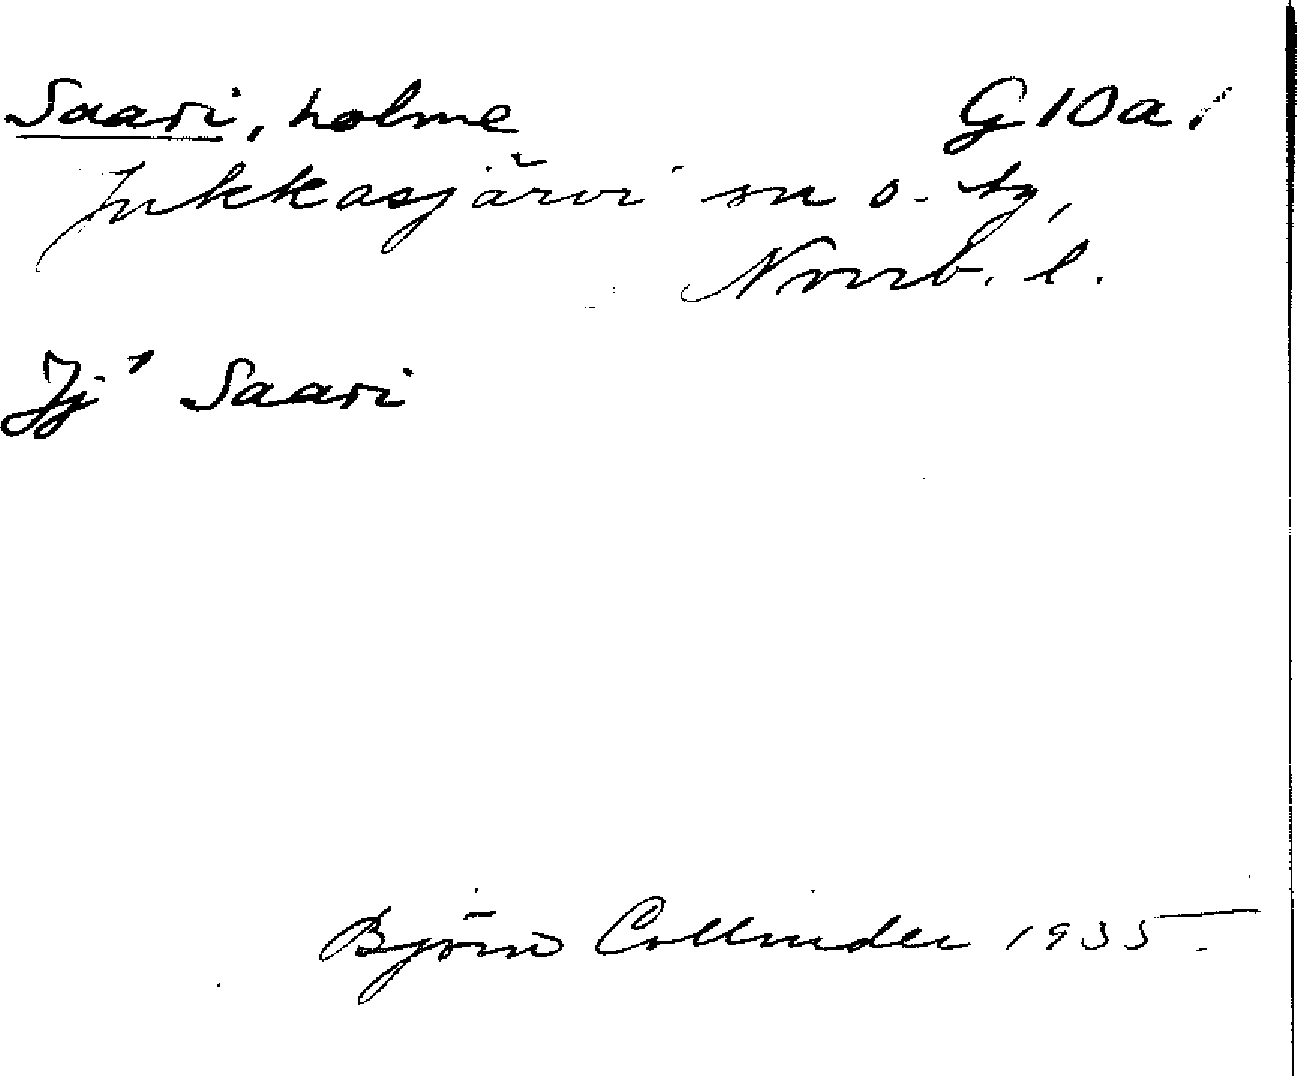 Saari, holme G10a.
Jukkasjärvi sn o. tg,
Norrb. l.
Jj' Saari
Björn Collinder 1935.